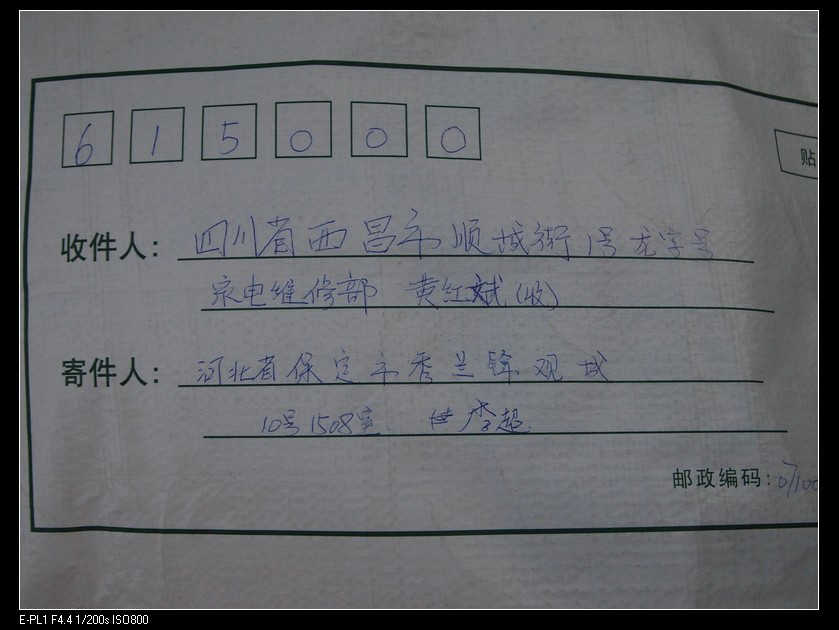 615000
贴
收件人: 四川省西昌市顺城街1号龙字号
家电维修部 黄红斌(收)
寄件人: 河北省保定市秀兰锋观城
10号1508室 李超
邮政编码: 07100
E-PL1 F4.4 1/200s ISO800